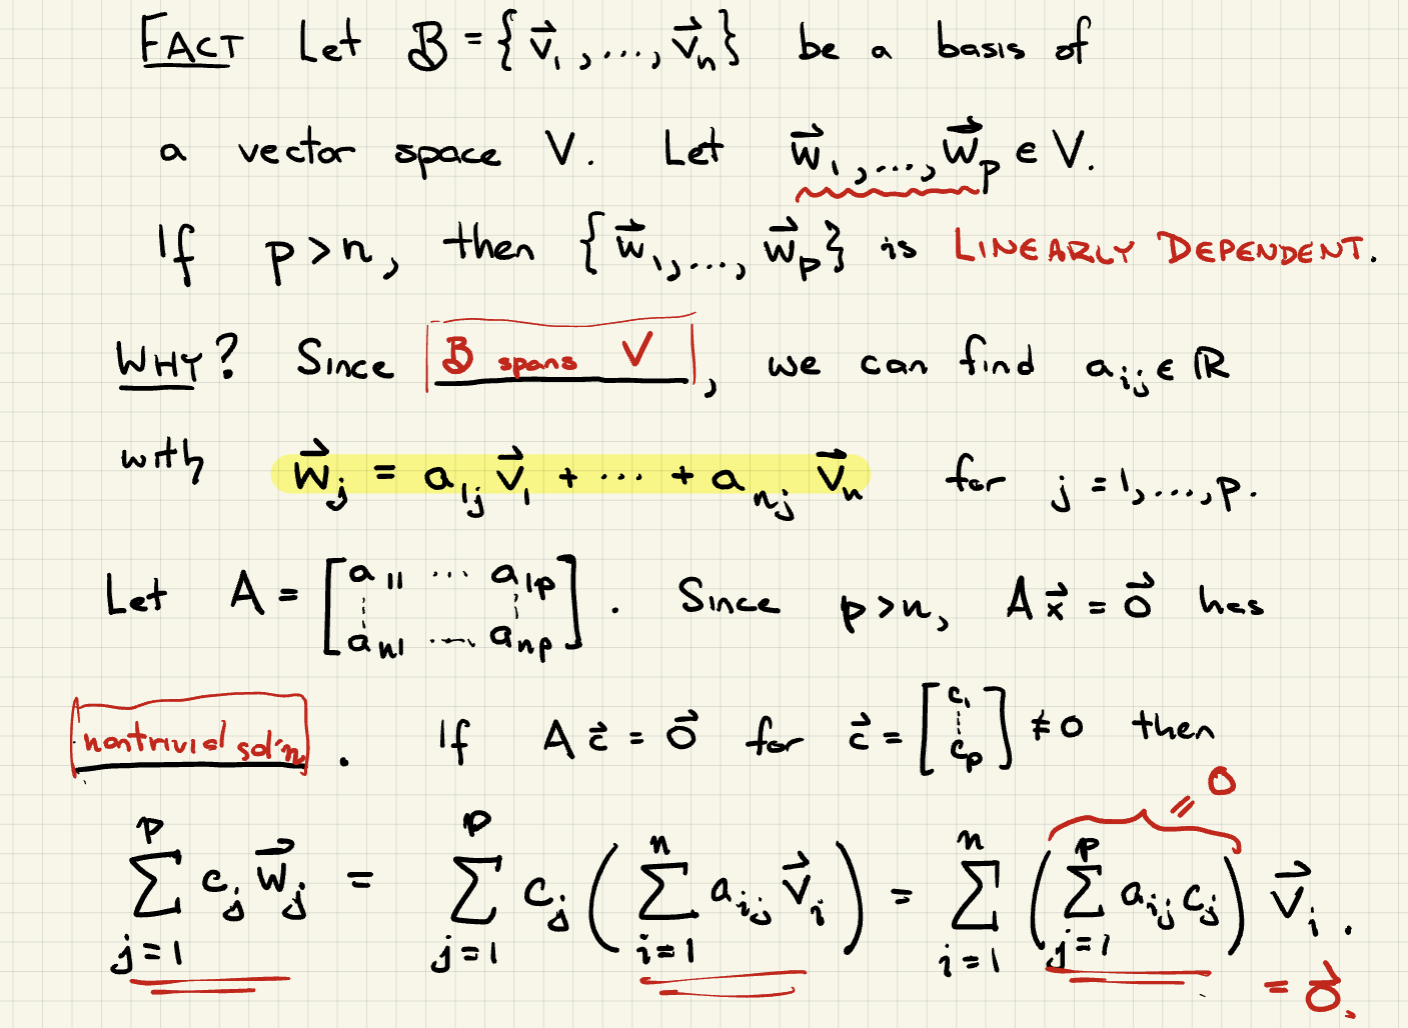 FACT Let B = {v⃗₁, ..., v⃗ₙ} be a basis of
a vector space V. Let w⃗₁, ..., w⃗ₚ ∈ V.
If p > n, then {w⃗₁, ..., w⃗ₚ} is LINEARLY DEPENDENT.
WHY? Since B spans V, we can find a_{ij} ∈ ℝ
with w⃗_j = a_{1j} v⃗₁ + ... + a_{nj} v⃗ₙ for j = 1, ..., p.
Let A = [a_{11} ... a_{1p} ⋮ ⋮ a_{n1} ... a_{np}]. Since p > n, A x⃗ = 0⃗ has
nontrivial sol'n. If A c⃗ = 0⃗ for c⃗ = [c₁ ⋮ cₚ] ≠ 0 then
∑_{j=1}^{p} c_j w⃗_j = ∑_{j=1}^{p} c_j (∑_{i=1}^{n} a_{ij} v⃗_i) = ∑_{i=1}^{n} (∑_{j=1}^{p} a_{ij} c_j) v⃗_i.
= 0
= 0⃗.